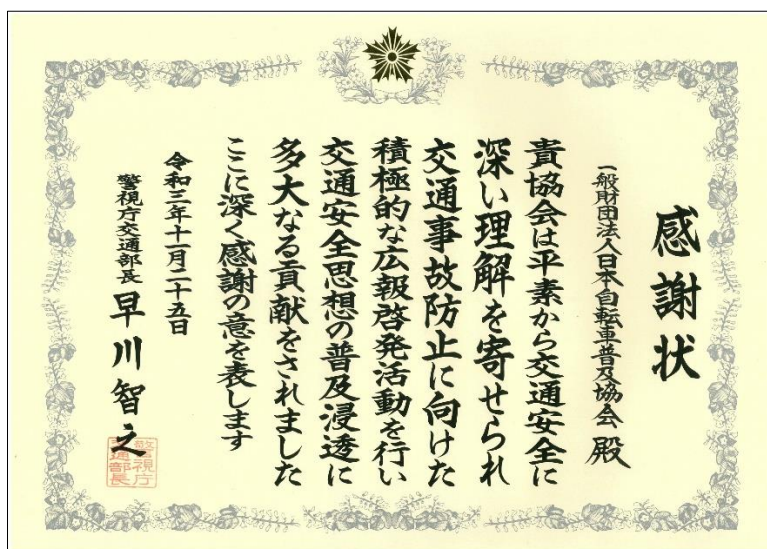 感謝状
一般財団法人日本自転車普及協会 殿
貴協会は平素から交通安全に
深い理解を寄せられ
交通事故防止に向けた
積極的な広報啓発活動を行い
交通安全思想の普及浸透に
多大なる貢献をされました
ここに深く感謝の意を表します
令和三年十一月二十五日
警視庁交通部長 早川智之
警視庁
交通部長